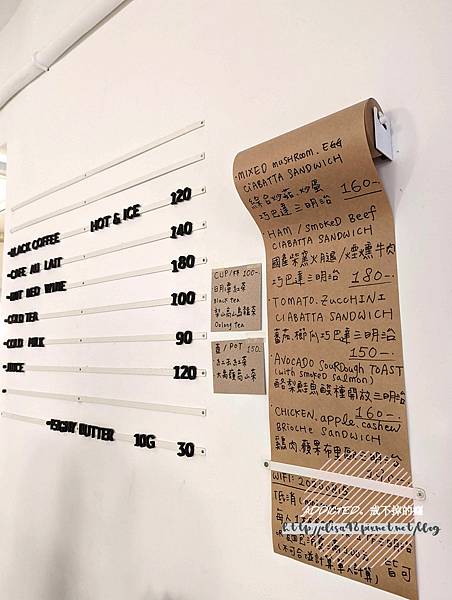 HOT & ICE
-BLACK COFFEE 120
-CAFE AU LAIT 140
-HOT RED WINE 180
-COLD TEA 100
-COLD MILK 90
-JUICE 120
-ESIGNY BUTTER 10G 30
CUP/杯 100-
日月潭紅茶
Black tea
梨山高山烏龍茶
Oolong tea
壺/POT 150-
大禹嶺高山茶
·MIXED mushROOM. EGG
CIABATTA SANDWICH
綜合炒菇.炒蛋
巧巴達三明治 160-
·HAM / smoked Beef
CIABATTA SANDWICH
國產柴窯火腿/煙燻牛肉
巧巴達三明治 180-
·TOMATO. ZUCCHINI
CIABATTA SANDWICH
蕃茄.櫛瓜巧巴達三明治
150-
·AVOCADO SOURDough TOAST
(with smoked salmon)
酪梨鮭魚酸種開放三明治
160-
CHICKEN. apple. cashew
BRIOCHE SANDWICH
雞肉.蘋果布里歐三明治
WIFI:
低消
每人
皆可
(不可合併計算單人計算)
ADDICTED. 戒不掉的癮
http://elisa98.pixnet.net/blog